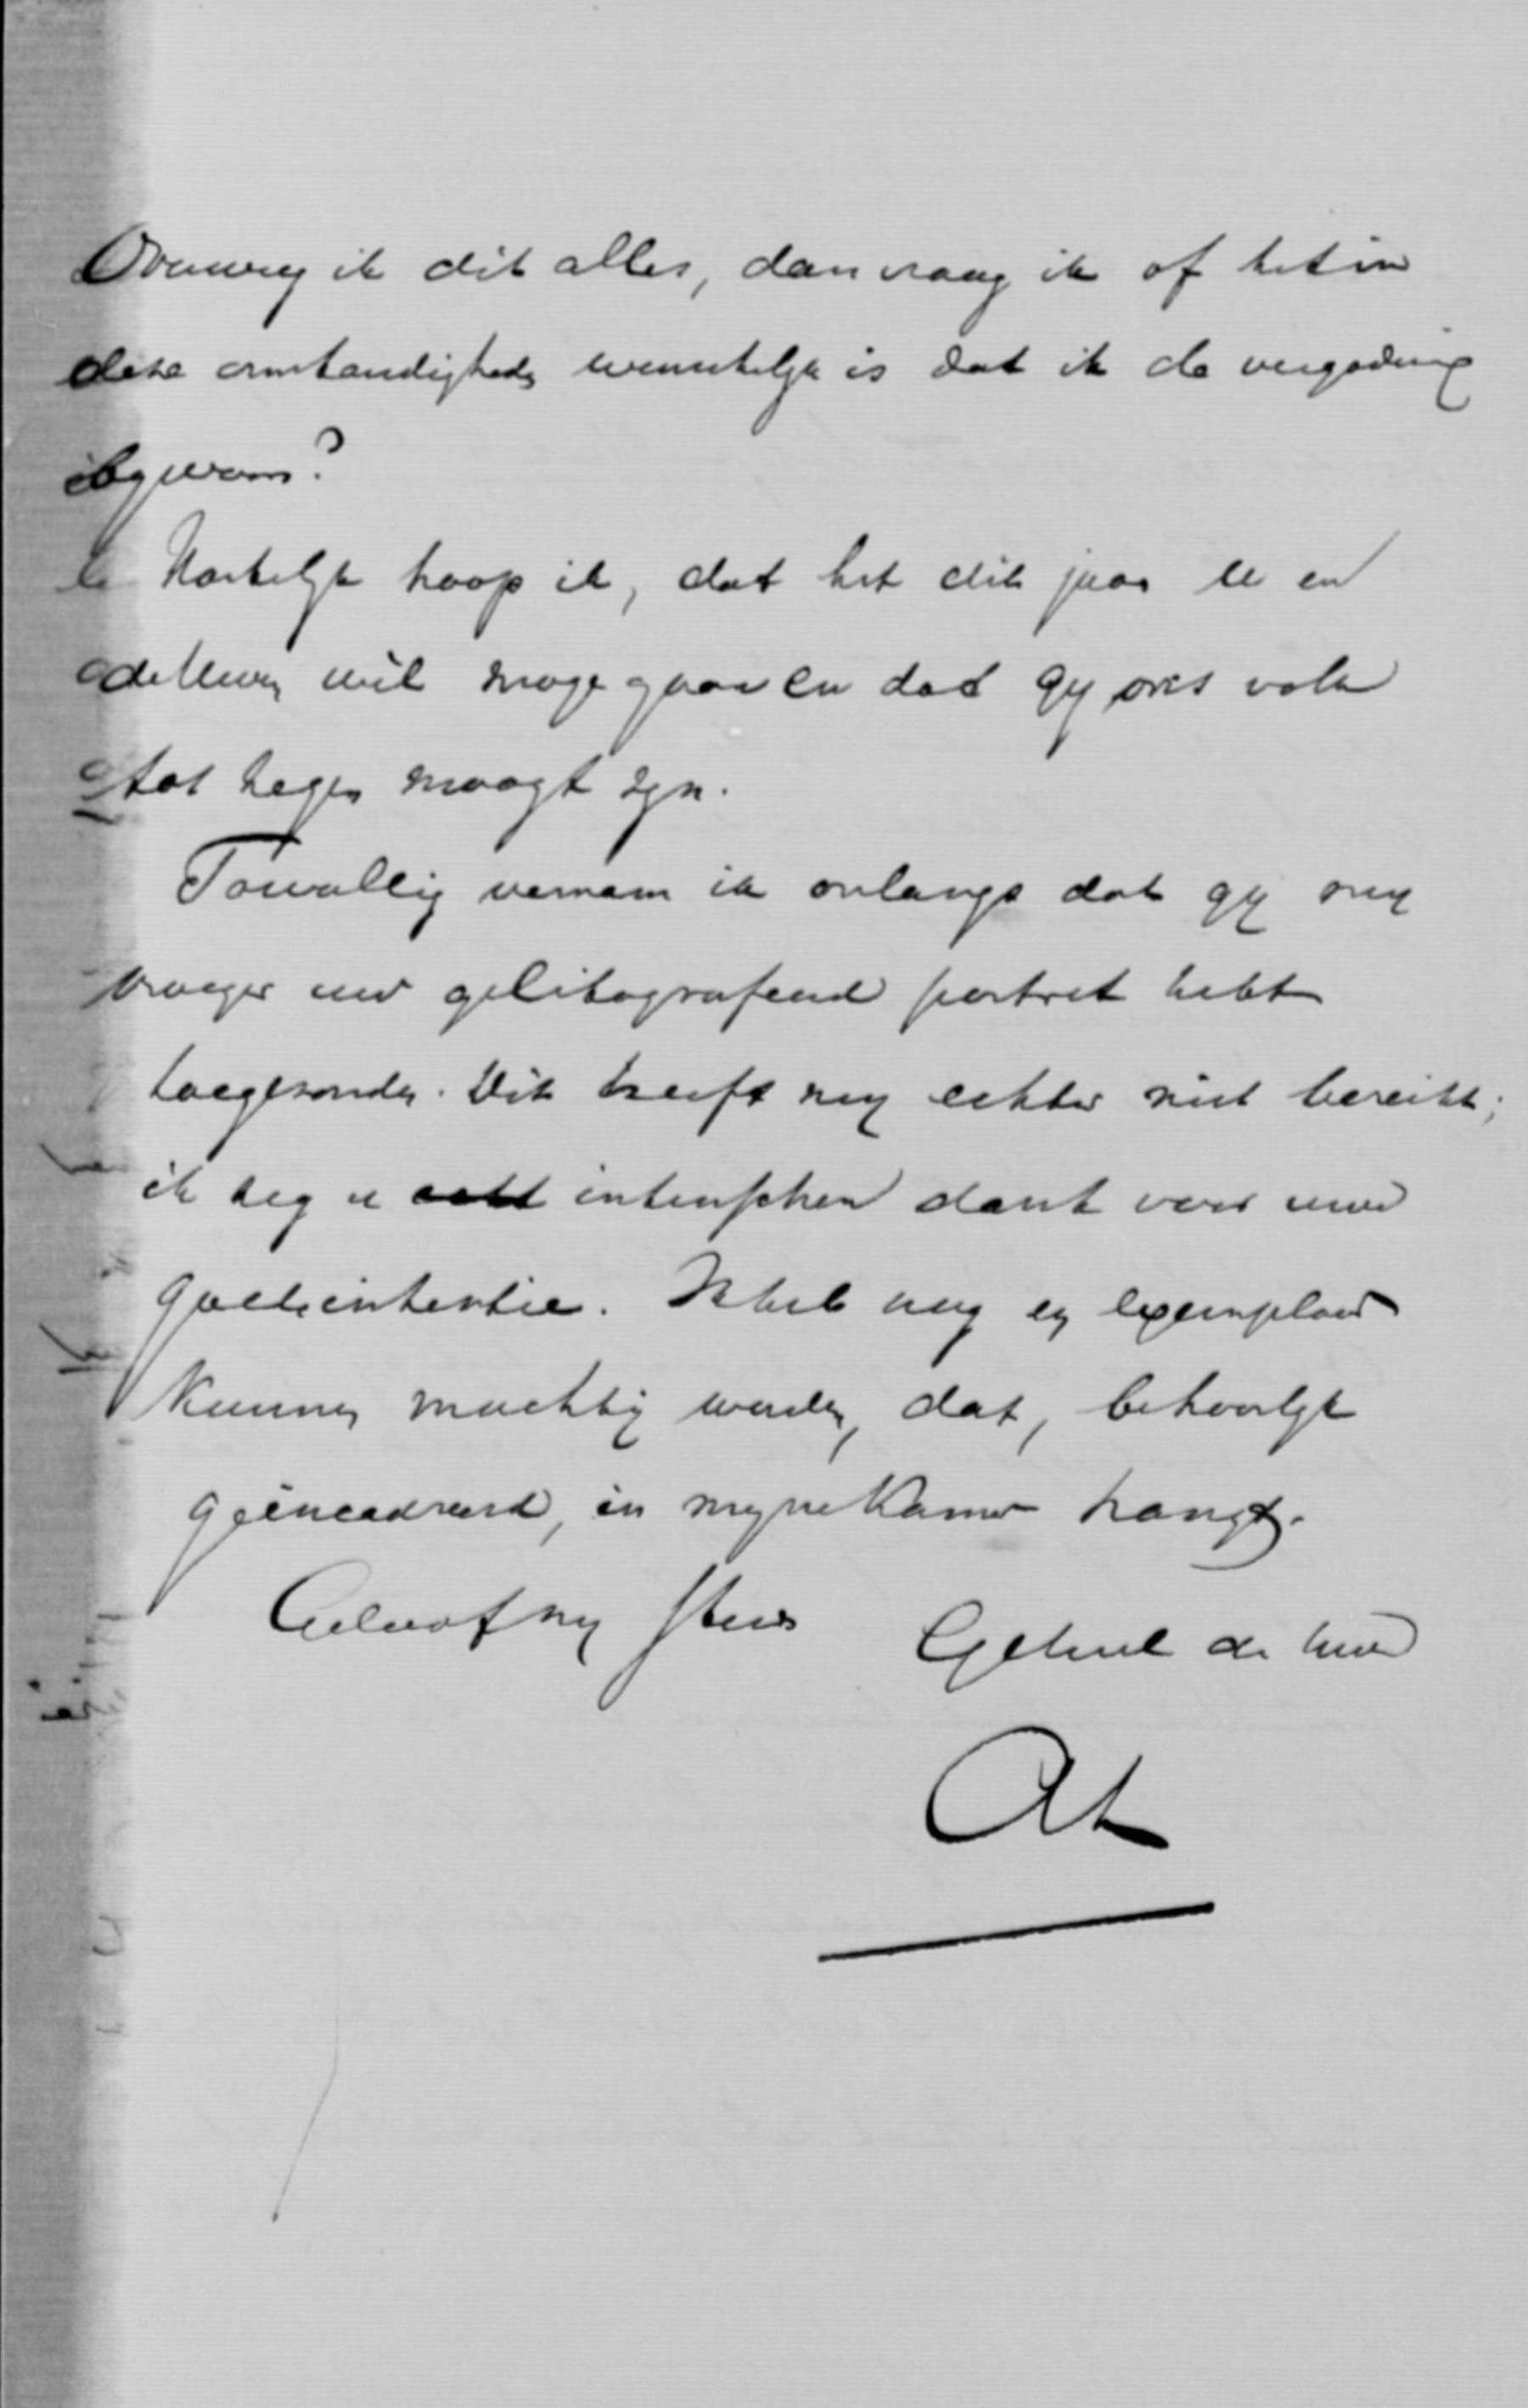 Overweeg ik dit alles, dan vraag ik of het in
deze omstandigheden wenschelijk is dat ik de vergadering
bywoon?
Hartelyk hoop ik, dat het dit jaar U en
de Uwen wèl moge gaan en dat gy ons volk
tot zegen moogt zyn.
Toevallig vernam ik onlangs dat gy my
vroeger uw gelitografeerd portret hebt
toegezonden. Dit heeft my echter niet bereikt;
ik zeg u intusschen dank voor uwe
goede intentie. Ik heb nog een exemplaar
kunnen machtig worden, dat, behoorlyk
geëncadreerd, in myne kamer hangt.
Geloof my steeds
Geheel de Uwe